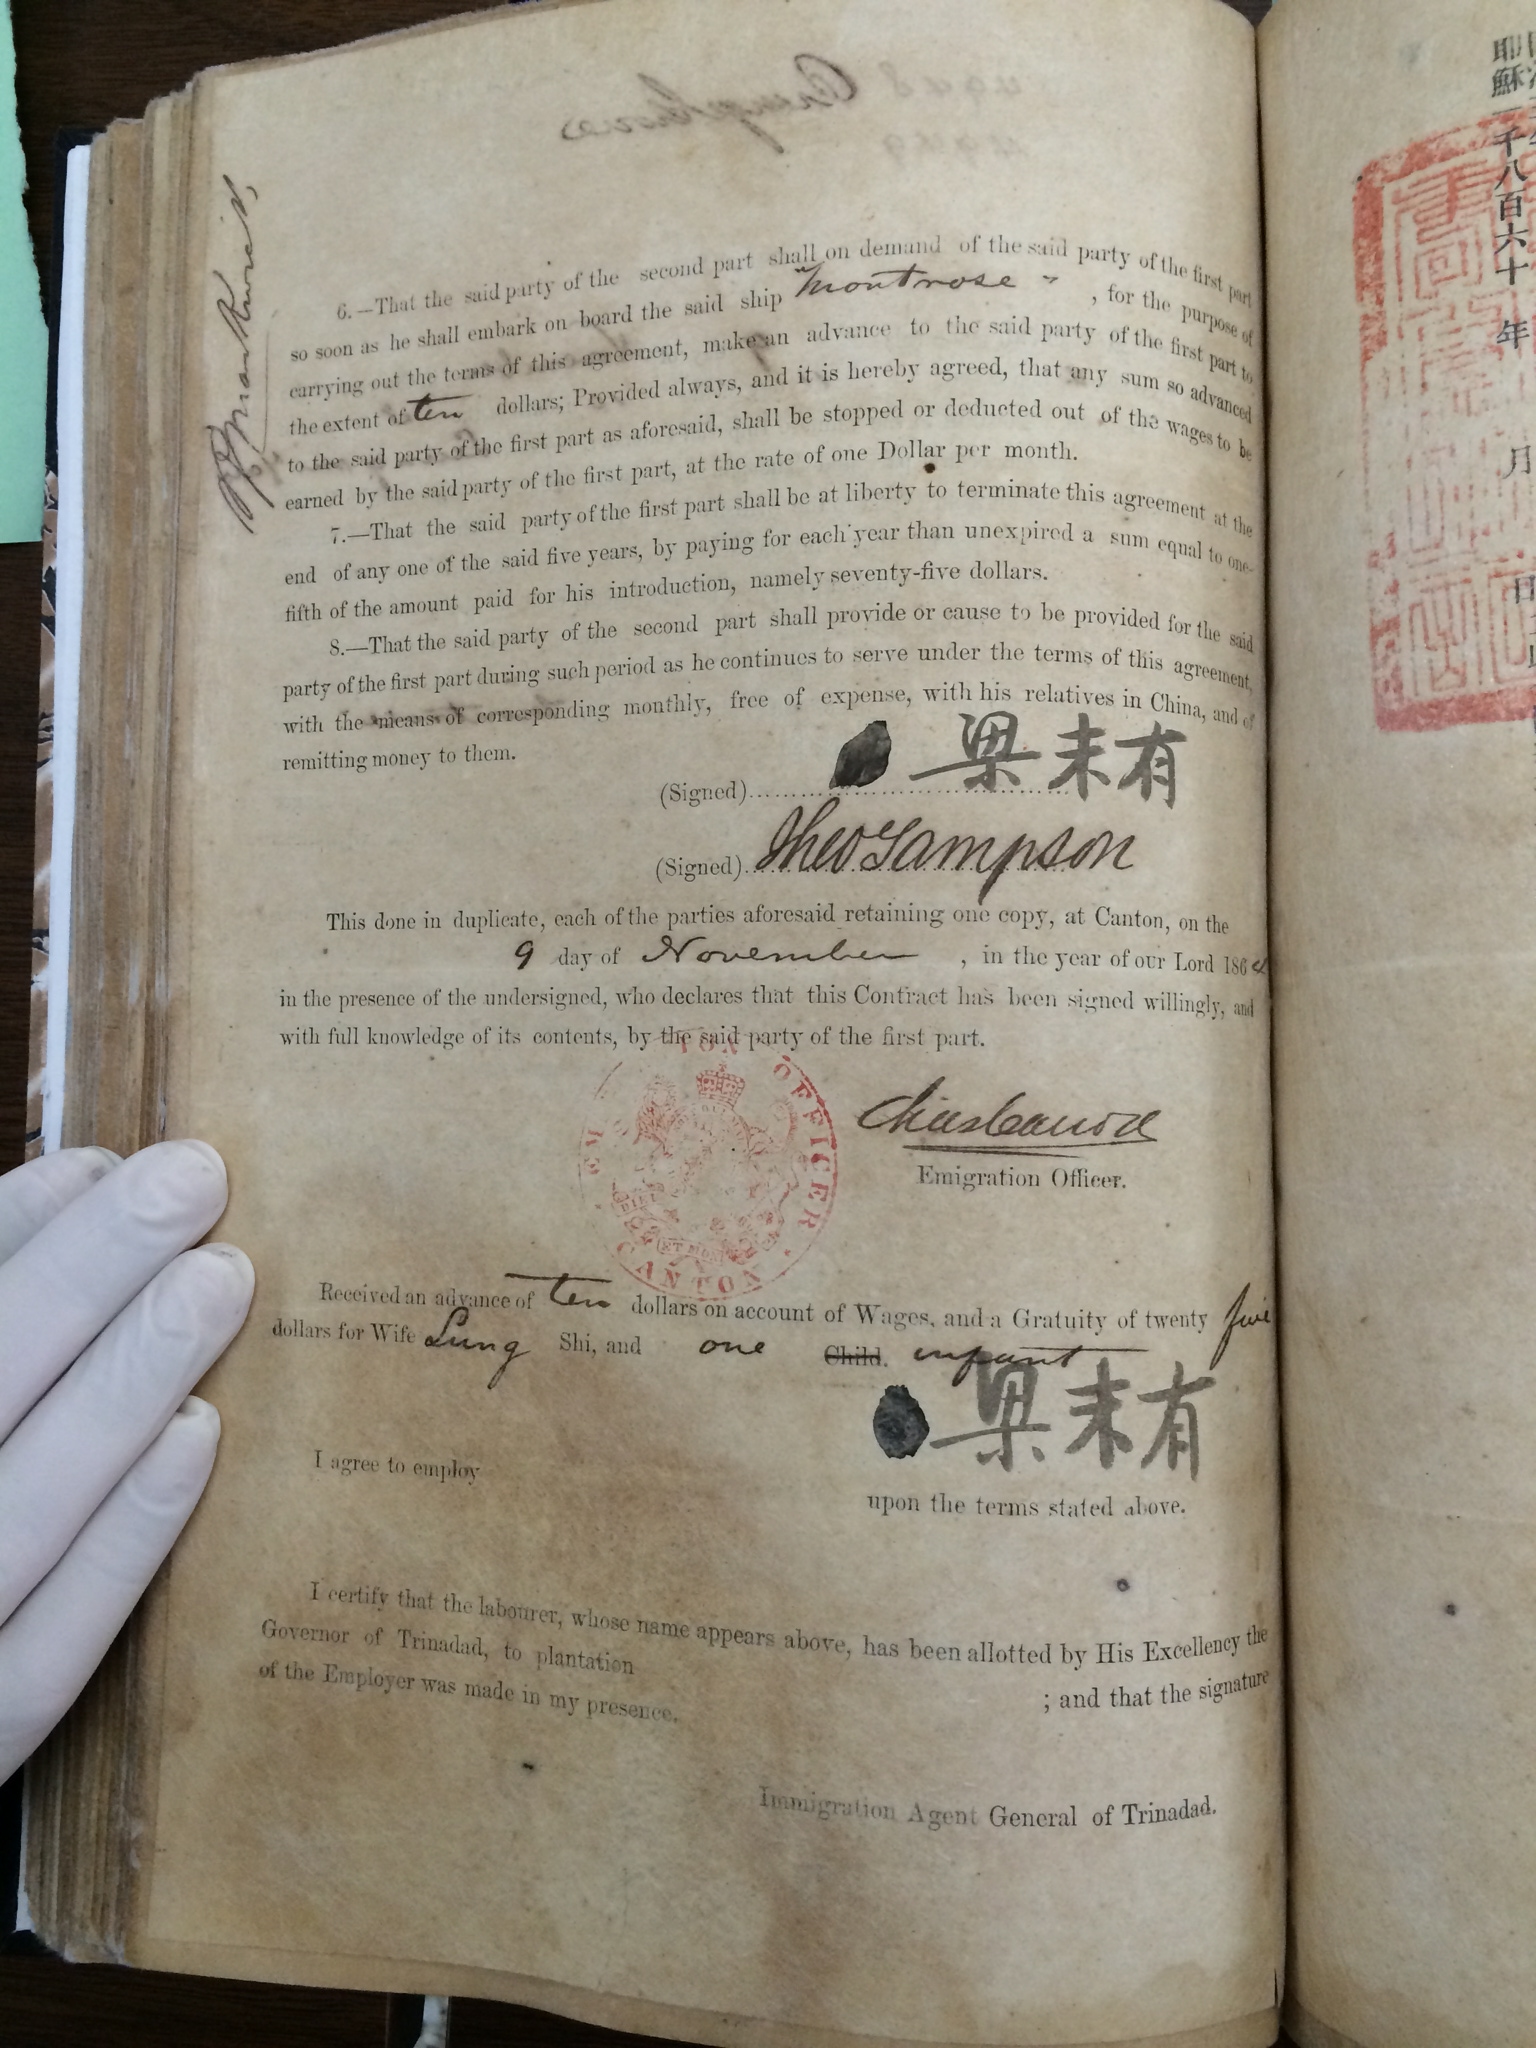 6.—That the said party of the second part shall on demand of the said party of the first part
so soon as he shall embark on board the said ship "Montrose", for the purpose of
carrying out the terms of this agreement, make an advance to the said party of the first part to
the extent of ten dollars; Provided always, and it is hereby agreed, that any sum so advanced
to the said party of the first part as aforesaid, shall be stopped or deducted out of the wages to be
earned by the said party of the first part, at the rate of one Dollar per month.
7.—That the said party of the first part shall be at liberty to terminate this agreement at the
end of any one of the said five years, by paying for each year than unexpired a sum equal to one-
fifth of the amount paid for his introduction, namely seventy-five dollars.
8.—That the said party of the second part shall provide or cause to be provided for the said
party of the first part during such period as he continues to serve under the terms of this agreement,
with the means of corresponding monthly, free of expense, with his relatives in China, and of
remitting money to them.
(Signed) 梁未有
(Signed) Theo Sampson
This done in duplicate, each of the parties aforesaid retaining one copy, at Canton, on the
9 day of November, in the year of our Lord 1864
in the presence of the undersigned, who declares that this Contract has been signed willingly, and
with full knowledge of its contents, by the said party of the first part.
OFFICER
CANTON
Emigration Officer.
Received an advance of ten dollars on account of Wages, and a Gratuity of twenty five
dollars for Wife Lung Shi, and one Child. infant
梁未有
I agree to employ
upon the terms stated above.
I certify that the labourer, whose name appears above, has been allotted by His Excellency the
Governor of Trinadad, to plantation
; and that the signature
of the Employer was made in my presence.
Immigration Agent General of Trinadad.
耶穌一千八百六十 年
月
日